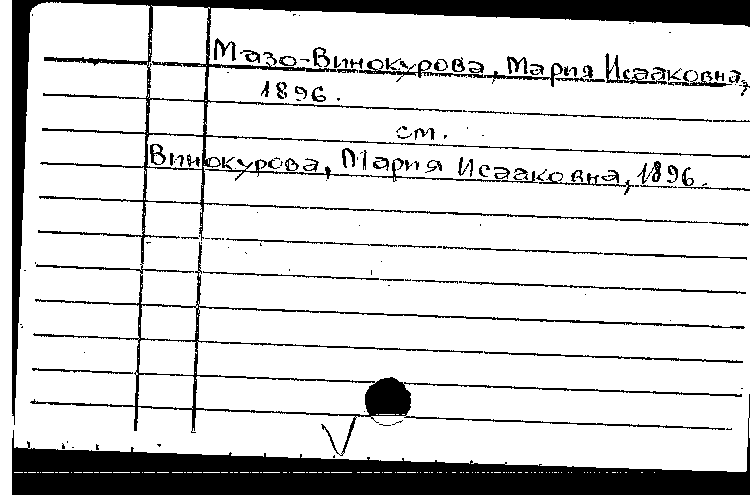 Мазо-Винокурова, Мария Исааковна,
1896.
см.
Винокурова, Мария Исааковна, 1896.